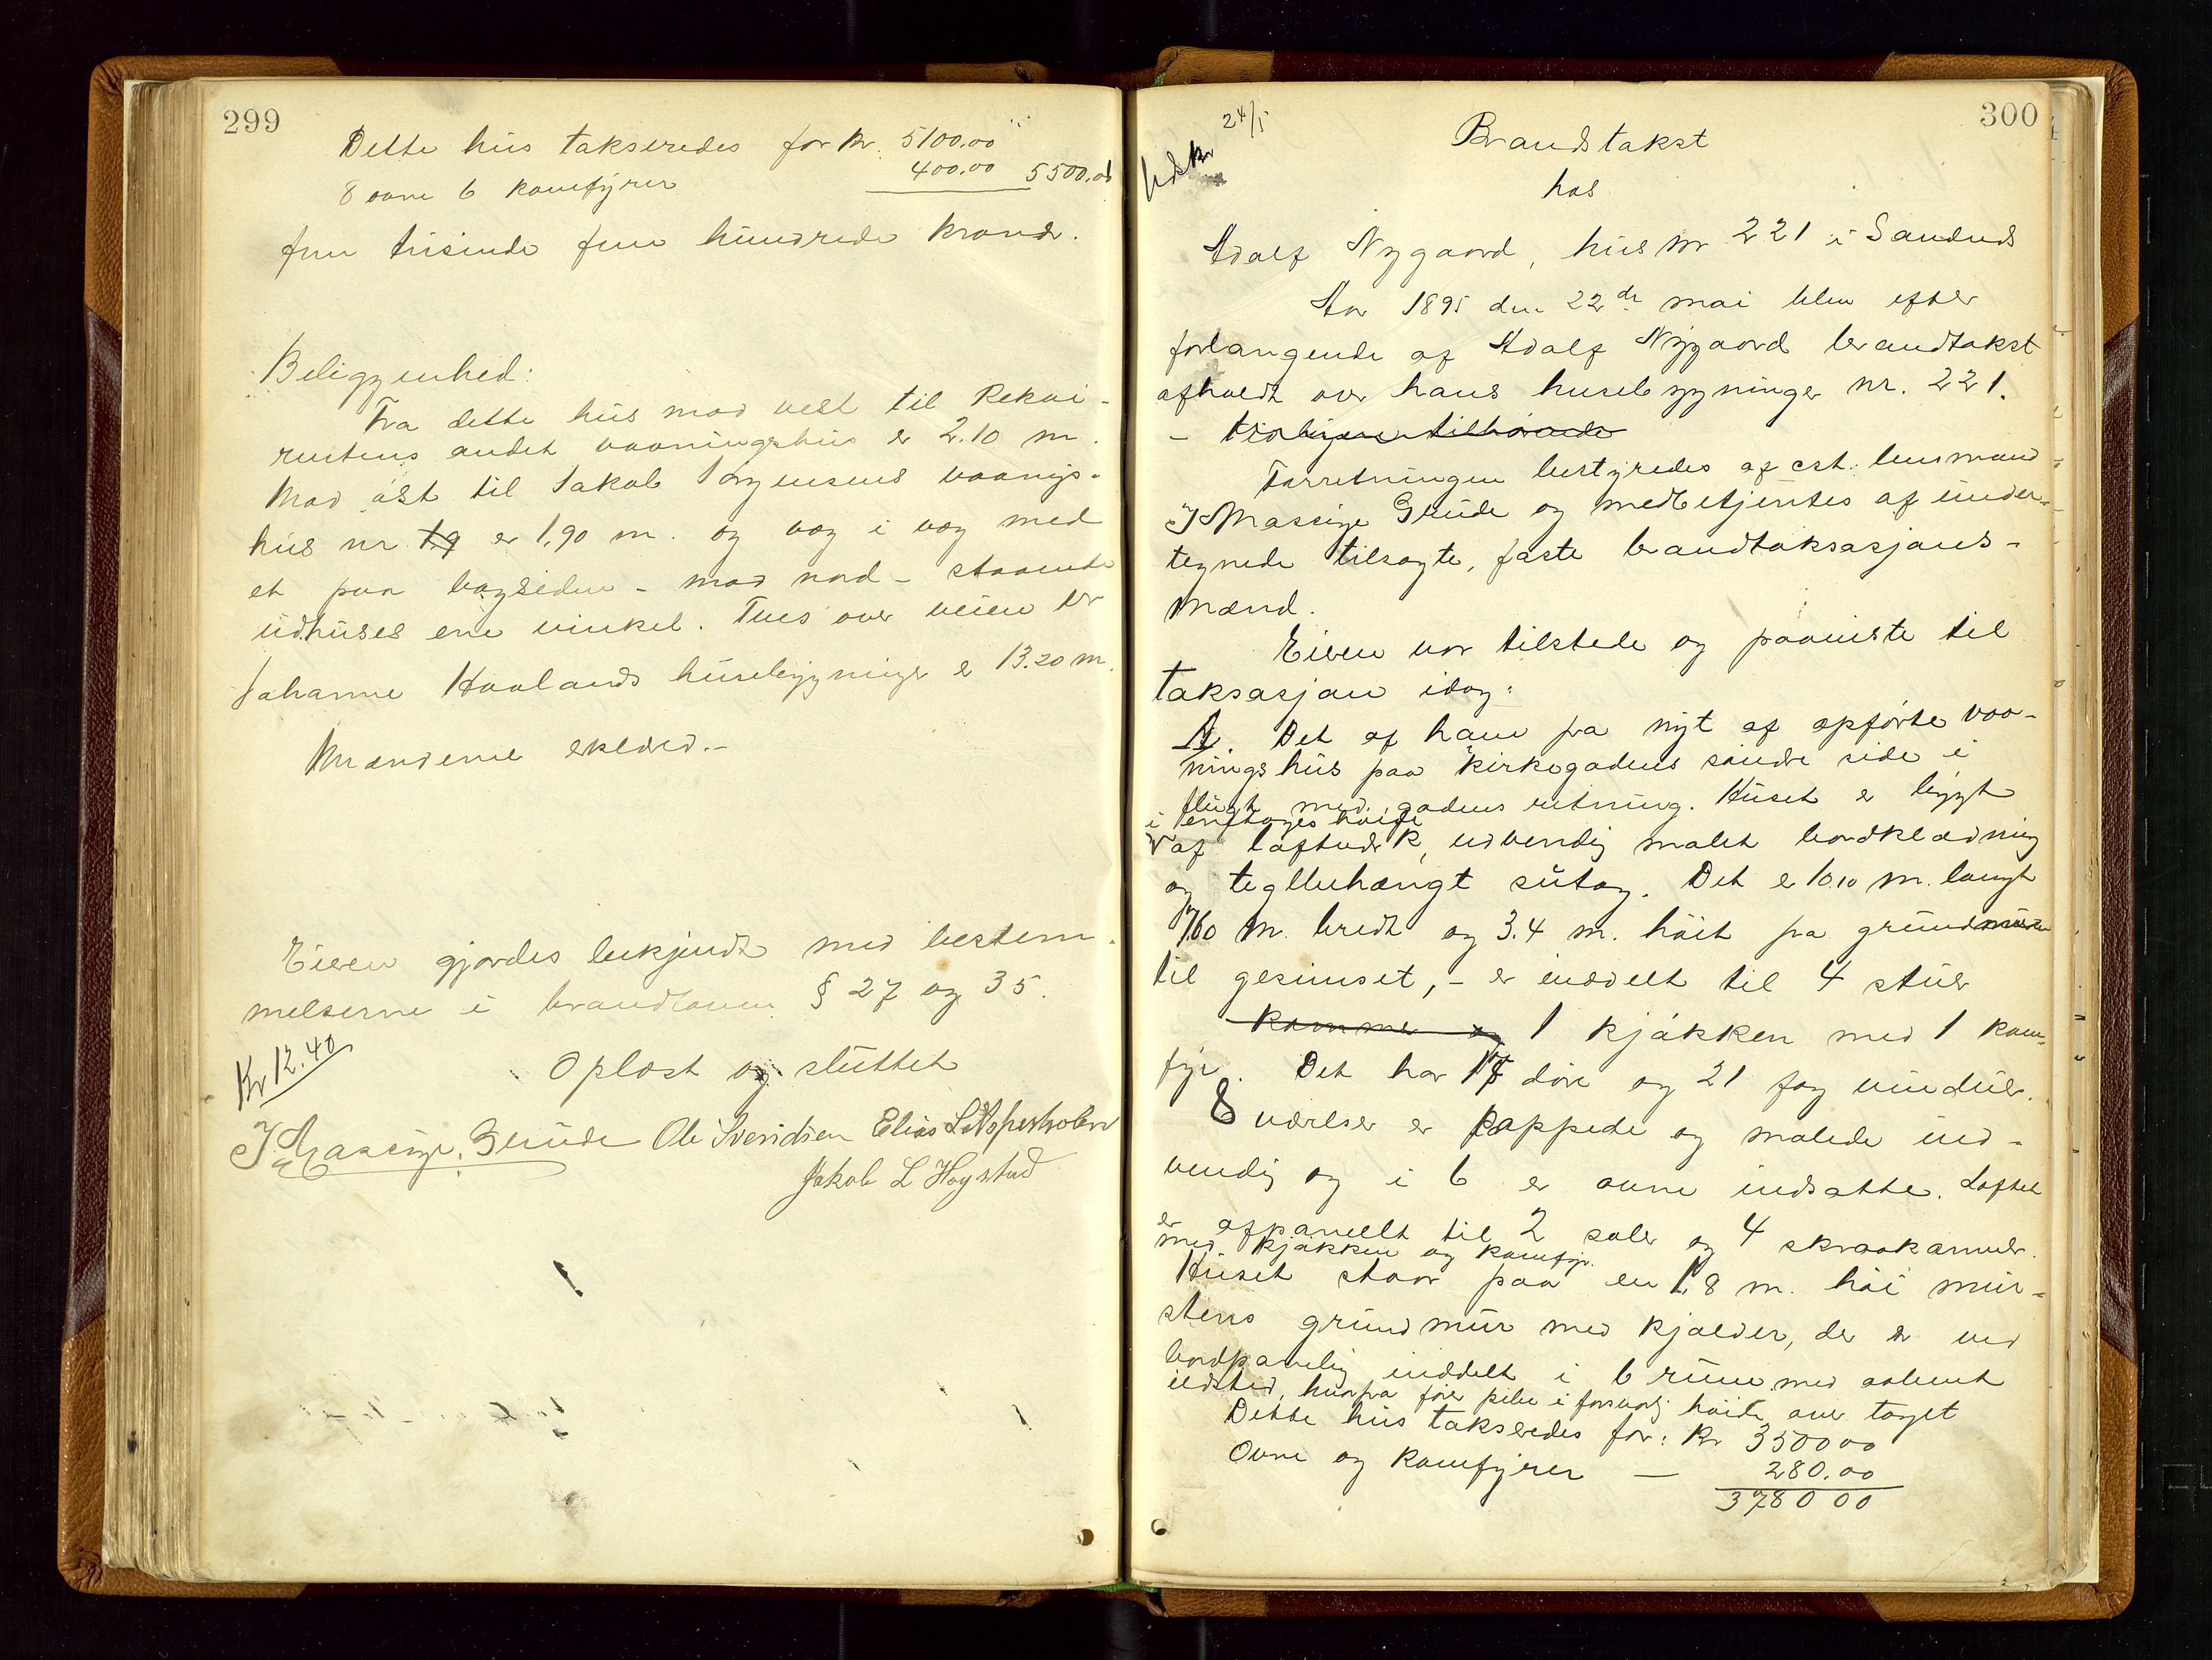 299
Dette hus takseredes for kr. 5100.00
8 ovne 6 komfyrer 400.00 5500.00
fem tusinde fem hundrede kroner.
Beliggenhed:
Fra dette hus mod vest til Rekvi-
rentens andet vaaningshus er 2.10 m.
Mod øst til Jakob Jørgensens vaanings-
hus nr 19 er 1,90 m. og væg i væg med
et paa bagsiden - mod nord - staaende
udhuses ene vinkel. Tvers over veien til
Johanne Haalands husebygninger er 13.20 m.
Mændenes eksæd.-
Eieren gjordes bekjendt med bestem-
melserne i brandloven § 27 og 35.
Kr 12.40
Oplæst og sluttet
J Massige Grude Ole Svendsen Elias L
Jakob L Høgstad
300
24/5
Udskr
Brandtakst
hos
Adolf Nygaard, hus nr 221 i Sandnes
Aar 1895 den 22de mai blev efter
forlangende af Adolf Nygaard brandtakst
afholdt over hans husebygninger nr. 221.
- tilhørende
Forretningen bestyredes af cst. lensmand
J Massige Grude og medbetjentes af under-
tegnede tilsagte, faste brandtaksasjons-
mænd.
Eieren var tilstede og paaviste til
taksasjon idag:
A. Det af ham fra nyt af opførte vaa-
ningshus paa kirkegadens søndre side i
flugt med gadens retning. Huset er bygt
i en etages høide
af loftverk, udvendig malet bordklædning
og teglbehængt sutag. Det er 10.10 m. langt
7.60 m. bredt og 3.4 m. høit fra grundmuren
til gesimset, - er inddelt til 4 stuer
kammer og 1 kjøkken med 1 kom-
fyr. Det har 17 døre og 21 fag vinduer.
8 værelser er pappede og malede ind-
vendig og i 6 er ovne indsatte. Loftet
er afpanellt til 2 saler og 4 skraakammer.
med kjøkken og komfyr.
Huset staar paa en 1,8 m. høi mur-
stens grundmur med kjælder, der er ved
bordpaneling inddelt i 6 rum med aabent
ildsted, hvorfra fører pibe i forsvarlig høide over taget
Dette hus takseredes for: Kr 3500 00
Ovne og komfyrer — 280.00
3780 00